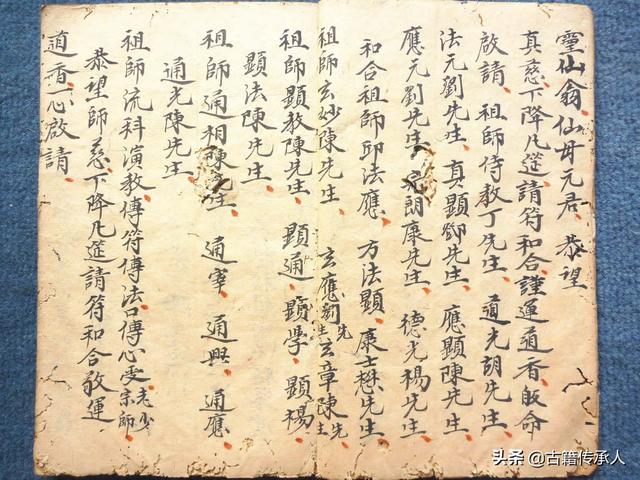 靈仙翁仙毋元君 恭望
真慈下降凡筵請符和合謹運道香皈命
啟請 祖師侍教丁先生 道光胡先生
法元劉先生 真顯鄧先生 應顯陳先生
應元劉先生 朗康先生 德光楊先生
和合祖師邱法應 方法顯 康士懋先生
祖師玄妙陳先生 玄應劉先生玄章陳先生
祖師顯教陳先生 顯通 顯學 顯楊
顯法陳先生
祖師通相陳先生 通寧 通興 通應
通光陳先生
祖師流科演教傳符傳法口傳心受老少宗師
恭望師慈下降凡筵請符和合敬運
道香一心啟請
头条@古籍传承人